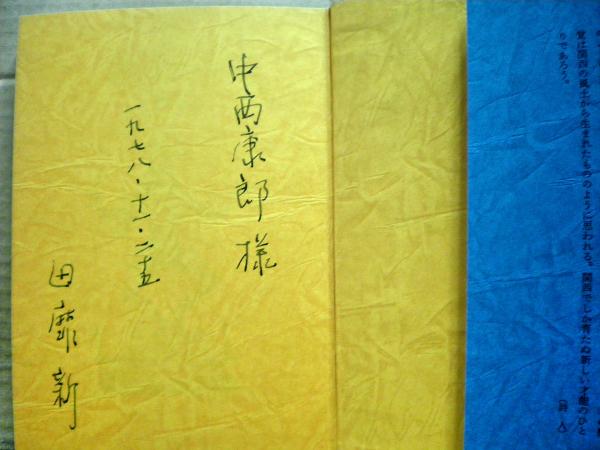 覚は関西の風土から生まれたもののように思われる。関西でしか育たぬ新しい才能のひと
りであろう。
（詩人）
中西康郎様
一九七八・十一・二十五
田靡新